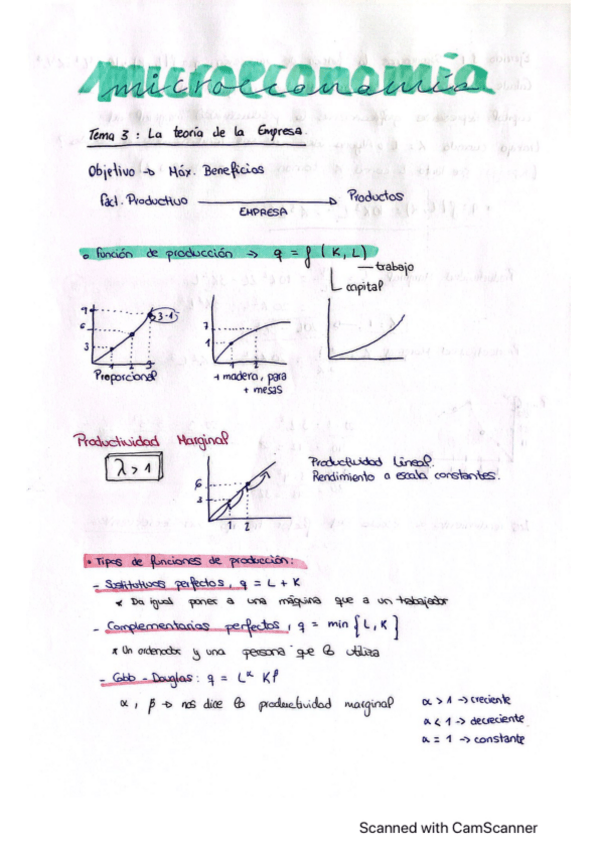 microeconomía
Tema 3 : La teoría de la Empresa.
Objetivo → Máx. Beneficios
Fact. Productivo → Productos
EMPRESA
• Función de producción → q = f ( K, L )
trabajo
capital
9
6
3
1 2 3
3·1
Proporcional
7
1
1 2
+ madera, para
+ mesas
Productividad Marginal
λ > 1
6
3
1 2
Productividad Lineal.
Rendimiento a escala constantes.
• Tipos de funciones de producción:
- Sustitutivos perfectos, q = L + K
* Da igual poner a una máquina que a un trabajador
- Complementarias perfectos, q = min { L, K }
* Un ordenador y una persona que lo utiliza
- Cobb - Douglas: q = L^α K^β
α, β → nos dice la productividad marginal
α > 1 → creciente
α < 1 → decreciente
α = 1 → constante
Scanned with CamScanner